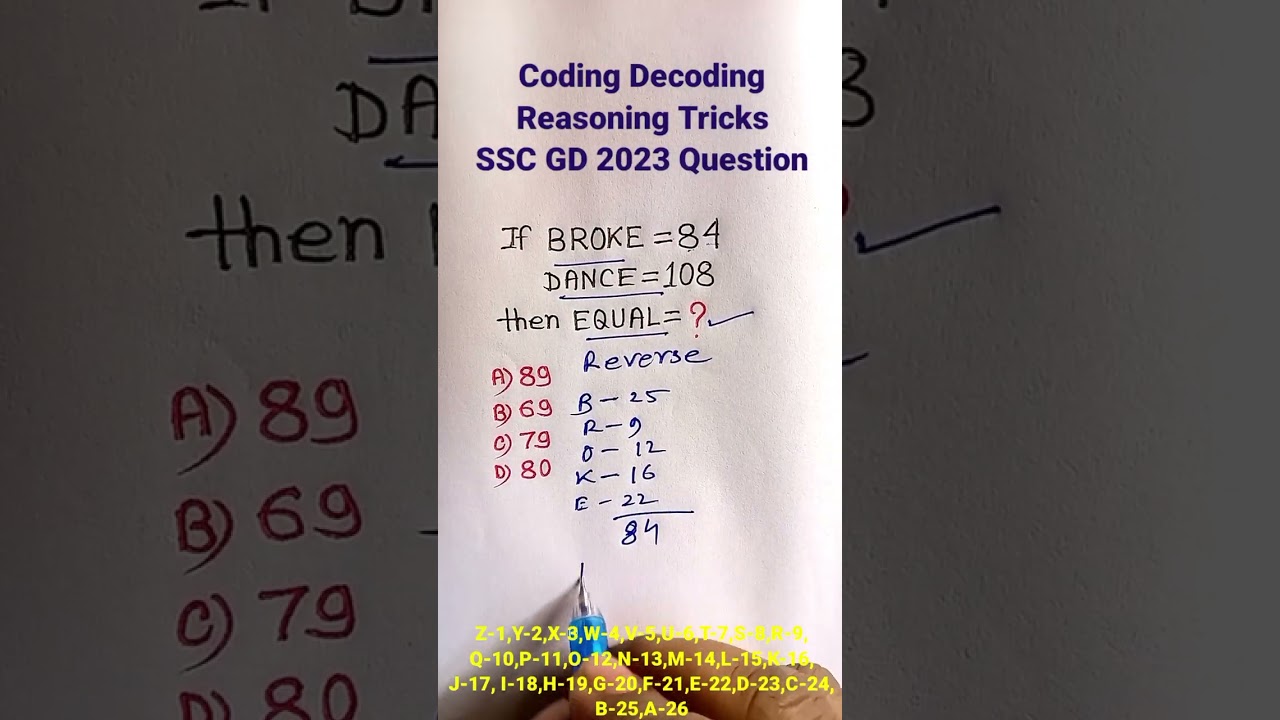 Coding Decoding
Reasoning Tricks
SSC GD 2023 Question
If BROKE = 84
DANCE = 108
then EQUAL = ?
Reverse
A) 89
B) 69
C) 79
D) 80
B - 25
R - 9
O - 12
K - 16
E - 22
84
Z-1,Y-2,X-3,W-4,V-5,U-6,T-7,S-8,R-9,
Q-10,P-11,O-12,N-13,M-14,L-15,K-16,
J-17, I-18,H-19,G-20,F-21,E-22,D-23,C-24,
B-25,A-26
DA
3
then
A) 89
B) 69
C) 79
D) 80